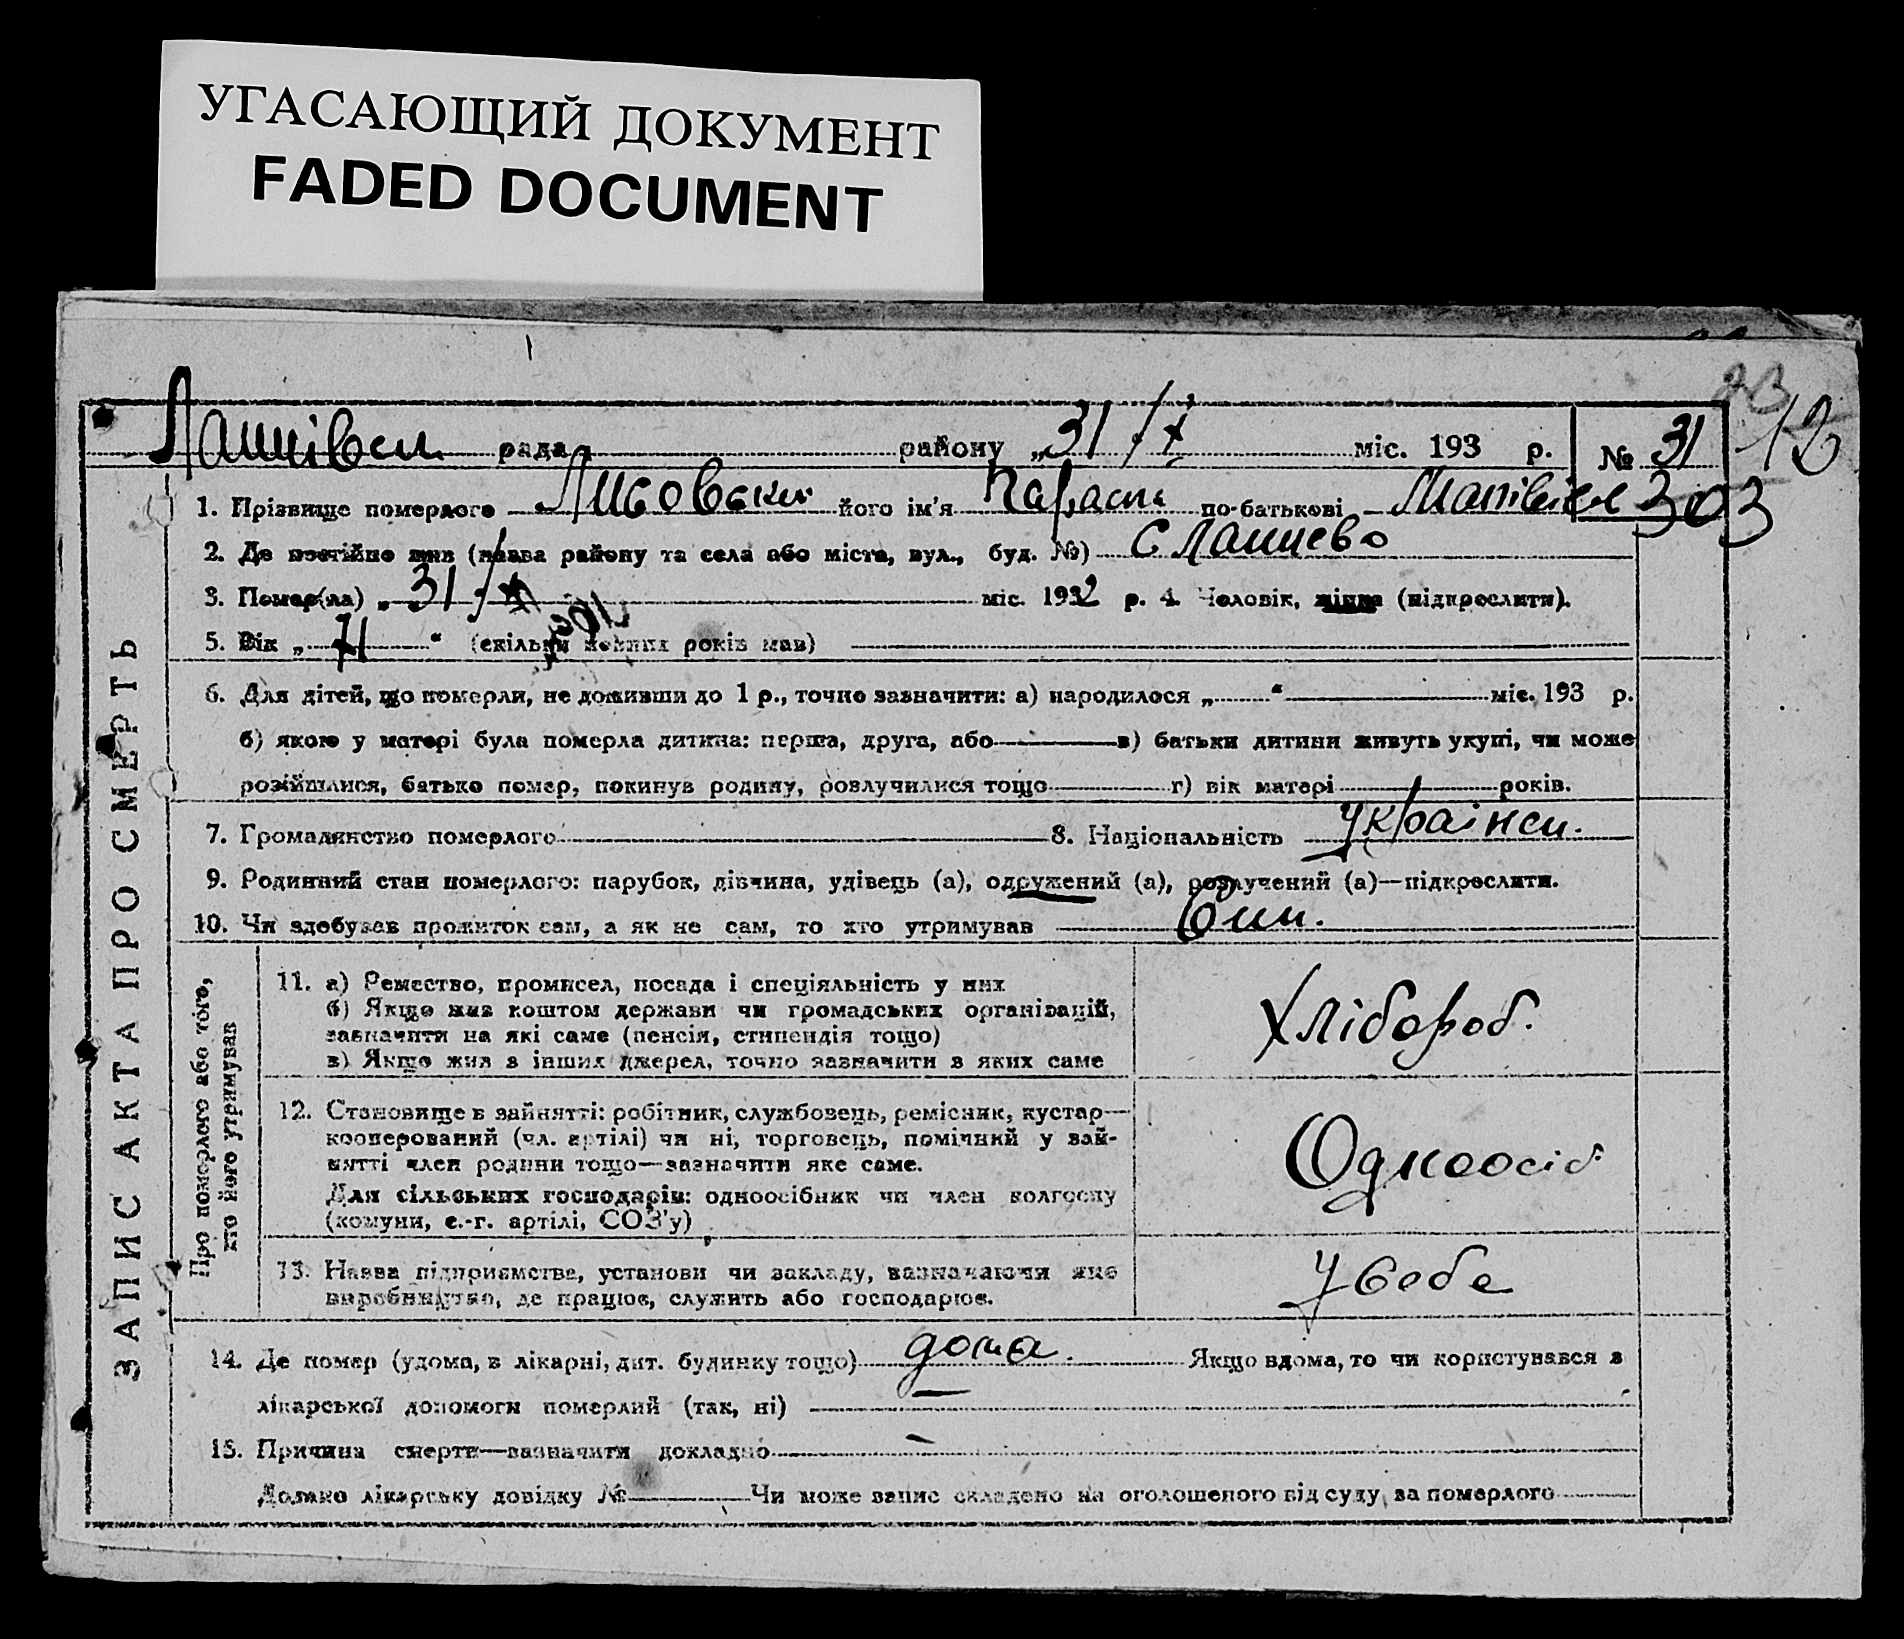 УГАСАЮЩИЙ ДОКУМЕНТ
FADED DOCUMENT
рада району „31/X міс. 193 р. № 31
1. Прізвище померлого його ім'я Параск по-батькові 303
2. Де постійно жив (назва району та села або міста, вул., буд. №) с Лашцево
3. Помер(ла) „31/X міс. 1932 р. 4. Чоловік, жінка (підкреслити).
5. Вік „ “ (скільки повних років мав)
6. Для дітей, що померли, не доживши до 1 р., точно зазначити: а) народилося „ “ міс. 193 р.
б) якою у матері була померла дитина: перша, друга, або в) батьки дитини живуть укупі, чи може
розійшлися, батько помер, покинув родину, розлучилися тощо г) вік матері років.
7. Громадянство померлого 8. Національність Українс.
9. Родинний стан померлого: парубок, дівчина, удівець (а), одружений (а), розлучений (а)—підкреслити.
10. Чи здобував прожиток сам, а як не сам, то хто утримував
ЗАПИС АКТА ПРО СМЕРТЬ
Про померлого або того,
хто його утримував
11. а) Ремество, промисел, посада і спеціяльність у них
б) Якщо жив коштом держави чи громадських організацій,
зазначити на які саме (пенсія, стипендія тощо)
в) Якщо жив з інших джерел, точно зазначити з яких саме
Хлібороб.
12. Становище в зайнятті: робітник, службовець, ремісник, кустар—
кооперований (чл. артілі) чи ні, торговець, помічний у зай-
нятті член родини тощо—зазначити яке саме.
Для сільських господарів: одноосібник чи член колгоспу
(комуни, с.-г. артілі, СОЗ'у)
Одноосіб
13. Назва підприємства, установи чи закладу, зазначаючи яке
виробництво, де працює, служить або господарює.
У себе
14. Де помер (удома, в лікарні, дит. будинку тощо) дома. Якщо вдома, то чи користувався з
лікарської допомоги померлий (так, ні) —
15. Причина смерти—зазначити докладно —
Додано лікарську довідку № Чи може запис складено на оголошеного від суду за померлого